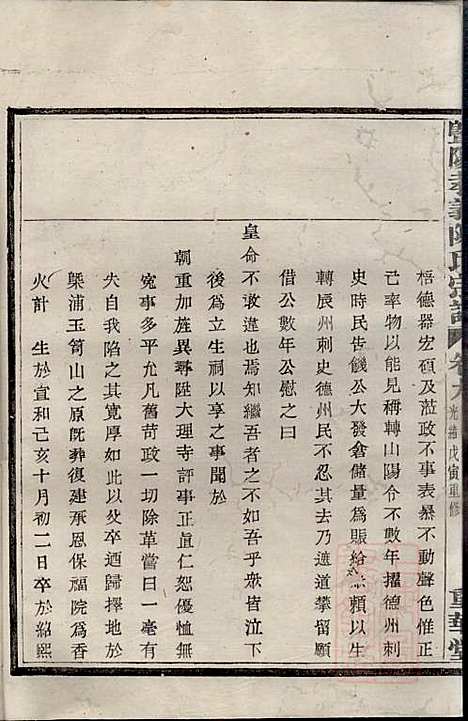 暨陽孝義陳氏宗譜 卷九 光緒戊寅重修 重華堂
梧德器宏碩及蒞政不事表暴不動聲色惟正
己率物以能見稱轉山陽令不數年擢德州刺
史時民告饑公大發倉儲量為賑給 賴以生
轉辰州刺史德州民不忍其去乃遮道攀留願
借公數年公慰之曰
皇命不敢違也焉知繼吾者之不如吾乎眾皆泣下
後為立生祠以享之事聞於
朝重加旌異尋陞大理寺評事正直仁恕優恤無
冤事多平允凡舊苛政一切除革嘗曰一毫有
失自我陷之其寬厚如此以父卒迺歸擇地於
槩浦玉笥山之原旣葬復建承恩保福院為香
火計 生於宣和己亥十月初二日卒於紹熙